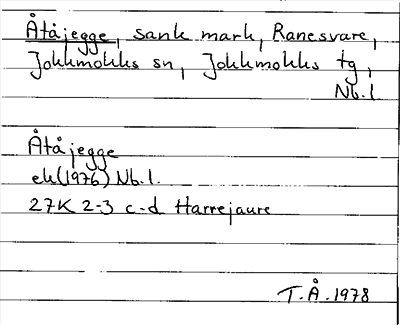 Åtåjegge, sank mark, Ranesvare,
Jokkmokks sn, Jokkmokks tg,
Nb.l
Åtåjegge
ek(1976) Nb.l.
27K 2-3 c-d Harrejaure
T.Å.1978